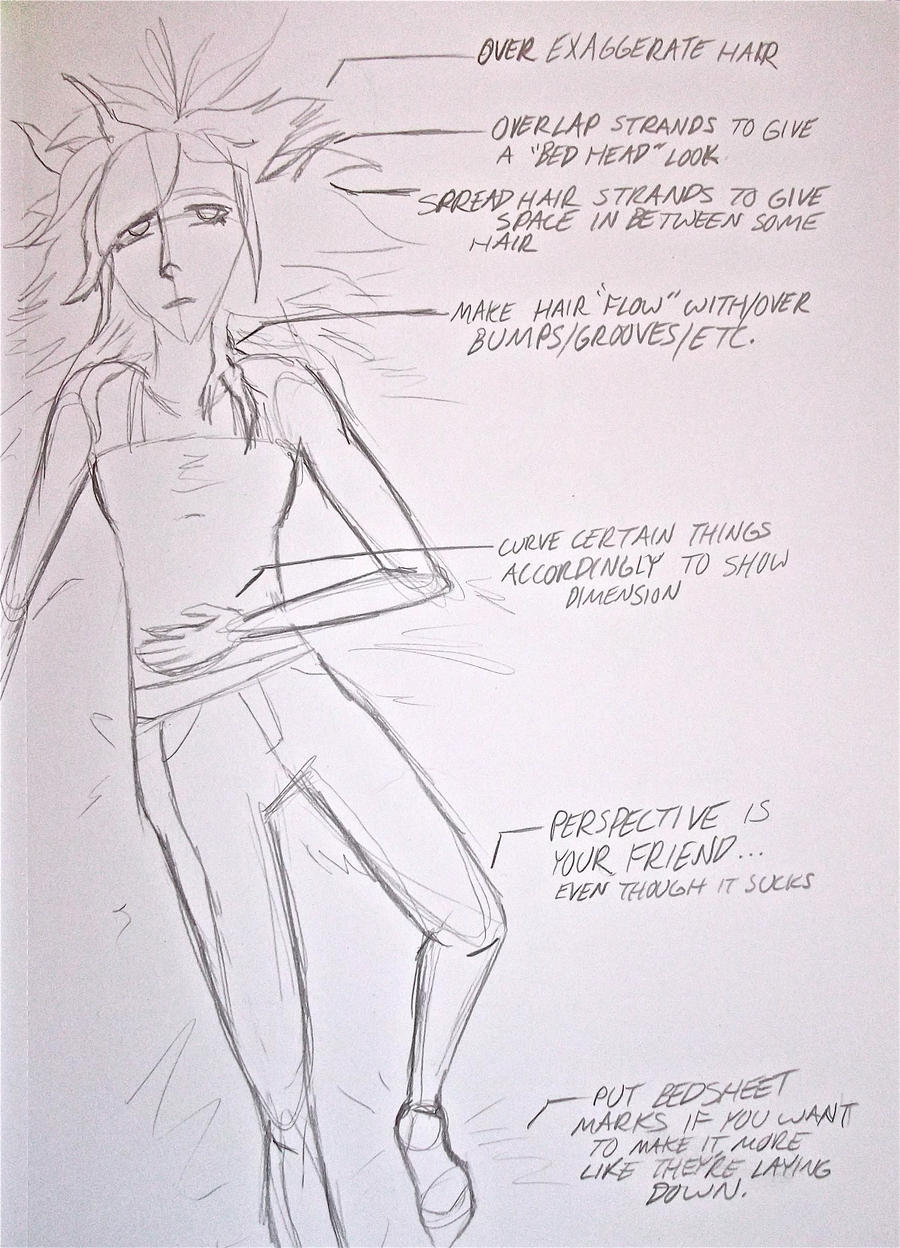 OVER EXAGGERATE HAIR
OVERLAP STRANDS TO GIVE
A "BED HEAD" LOOK.
SPREAD HAIR STRANDS TO GIVE
SPACE IN BETWEEN SOME
HAIR
MAKE HAIR "FLOW" WITH/OVER
BUMPS/GROOVES/ETC.
CURVE CERTAIN THINGS
ACCORDINGLY TO SHOW
DIMENSION
PERSPECTIVE IS
YOUR FRIEND...
EVEN THOUGH IT SUCKS
PUT BEDSHEET
MARKS IF YOU WANT
TO MAKE IT MORE
LIKE THEY'RE LAYING
DOWN.